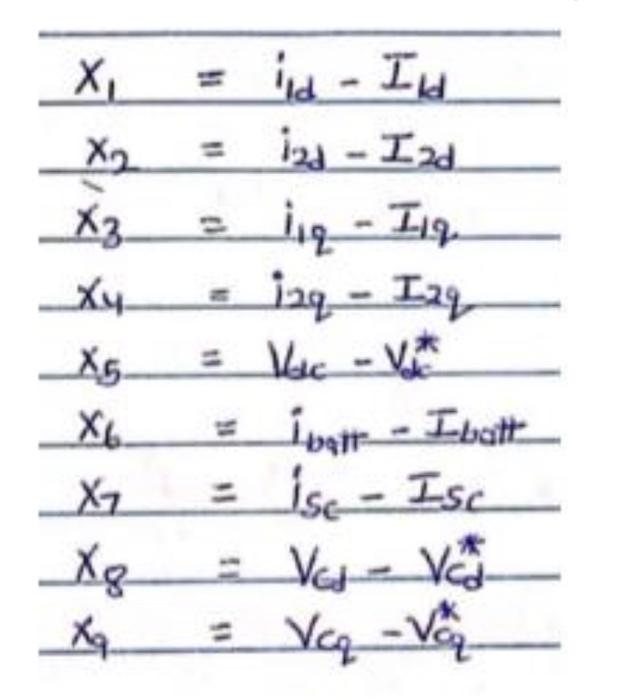 X₁ = i₁d - I₁d
X₂ = i₂d - I₂d
X₃ = i₁q - I₁q
X₄ = i₂q - I₂q
X₅ = Vdc - Vdc*
X₆ = ibatt - Ibatt
X₇ = isc - Isc
X₈ = Vcd - Vcd*
X₉ = Vcq - Vcq*